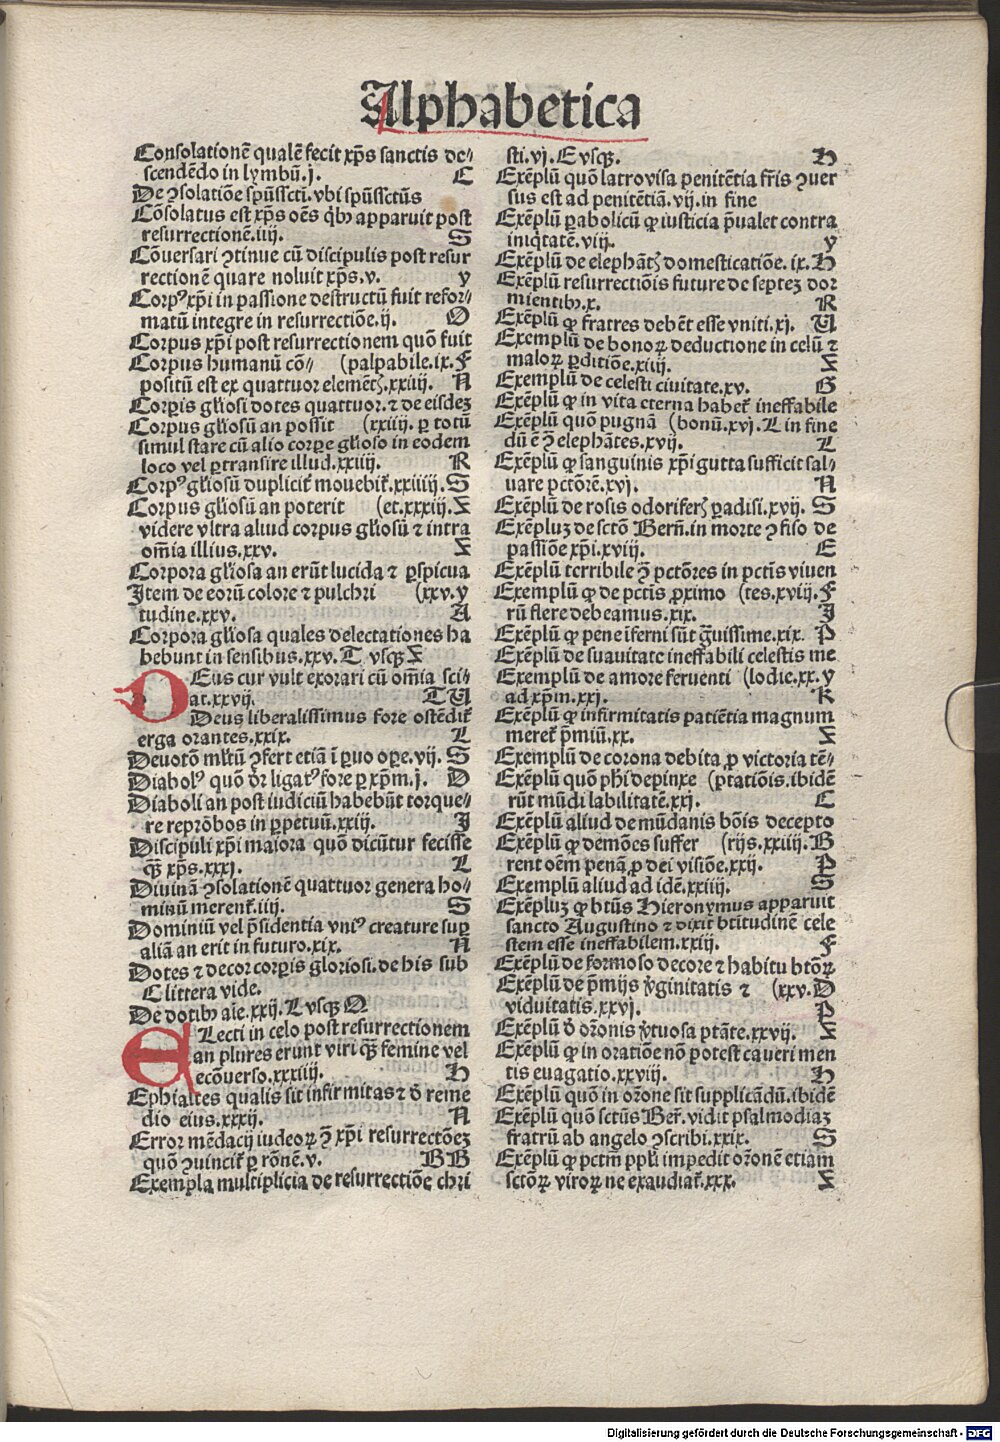 Alphabetica
Consolationē qualē fecit xp̄s sanctis de⸗
scendēdo in lymbū.j. C
De ꝯsolatiōe spūssct̄i. vbi spūssct̄us
Cōsolatus est xp̄s oēs q̇bꝫ apparuit post
resurrectionē.iiij. S
Cōuersari ꝯtinue cū discipulis post resur
rectionē quare noluit xp̄s.v. y
Corpꝰ xp̄i in passione destructū fuit refor⸗
matū integre in resurrectiōe.ij. O
Corpus xp̄i post resurrectionem quō fuit
Corpus humanū cō⸗ (palpabile.ix. F
positū est ex quattuor elemētꝭ.xxiiij. N
Corꝑis gl̄iosi dotes quattuor. ⁊ de eisdeꝫ
Corpus gl̄iosū an possit (xxiiij. ꝑ totū
simul stare cū alio corꝑe gl̄ioso in eodem
loco vel ꝑtransire illud.xxiiij. R
Corpꝰ gl̄iosū duplicit̄ mouebit̄.xxiiiij. S
Corpus gl̄iosū an poterit (et.xxxiij. X
videre vltra aliud corpus gl̄iosū ⁊ intra
om̄ia illius.xxv. X
Corpora gl̄iosa an erūt lucida ⁊ ꝑspicua
Item de eorū colore ⁊ pulchri (xxv. y
tudine.xxv. A
Corpora gl̄iosa quales delectationes ha
bebunt in sensibus.xxv. T vsqꝫ X
DEus cur vult exorari cū om̄ia sci⸗
at.xxvij. T U
Deus liberalissimus fore ostēdit̄
erga orantes.xxix. L
Deuotō ml̄tū ꝯfert etiā ī ꝑuo oꝑe.vij. S
Diabolꝰ quō dr̄ ligatꝰ fore ꝑ xp̄m.j. D
Diaboli an post iudiciū habebūt torque⸗
re reprōbos in ꝑpetuū.xxiij. I
Discipuli xp̄i maiora quō dicūtur fecisse
qꝫ̄ xp̄s.xxxj. L
Diuinā ꝯsolationē quattuor genera ho⸗
minū merent̄.iiij. S
Dominiū vel p̄sidentia vniꝰ creature suꝑ
aliā an erit in futuro.xix. N
Dotes ⁊ decor corꝑis gloriosi. de his sub
C littera vide.
De dotibꝫ aīe.xxij. L vsqꝫ Q
ELecti in celo post resurrectionem
an plures erunt viri qꝫ̄ femine vel
ecōuerso.xxxiiij. H
Ephialtes qualis sit infirmitas ⁊ ḋ reme
dio eius.xxxij. N
Error mēdacij iudeoꝝ ꝯ̄ xp̄i resurrectōeꝫ
quō ꝯuincit̄ ꝑ rōnē.v. B B
Exempla multiplicia de resurrectiōe chri
sti.vj. E vsqꝫ. H
Exēplū quō latro visa penitētia fr̄is ꝯuer
sus est ad penitētiā.vij. in fine
Exēplū ꝑabolicū ꝙ iusticia p̄ualet contra
iniq̇tatē.viij. y
Exēplū de elephātꝭ domesticatiōe.ix. H
Exēplū resurrectiōis future de septeꝫ dor
mientibꝫ.x. R
Exēplū ꝙ fratres debēt esse vniti.xj. U
Exemplū de bonoꝝ deductione in celū ⁊
maloꝝ ꝑditiōe.xiiij. X
Exemplū de celesti ciuitate.xv. G
Exēplū ꝙ in vita eterna habet̄ ineffabile
Exēplū quō pugnā (bonū.xvj. L in fine
dū ē ꝯ̄ elephātes.xvij. L
Exēplū ꝙ sanguinis xp̄i gutta sufficit sal⸗
uare pctōrē.xvj. N
Exēplū de rosis odoriferꝭ ꝑadisi.xvij. S
Exēpluꝫ de sctō Bern̄. in morte ꝯfiso de
passiōe xp̄i.xviij. E
Exēplū terribile ꝯ̄ pctōres in pct̄is viuen
Exemplū ꝙ de pct̄is ꝓximo (tes.xviij. F
rū flere debeamus.xix. I
Exēplū ꝙ pene īferni sūt g̃uissime.xix. P
Exēplū de suauitate ineffabili celestis me
Exemplū de amore feruenti (lodie.xx. y
ad xp̄m.xxj. K
Exēplū ꝙ infirmitatis patiētia magnum
meret̄ p̄miū.xx. X
Exemplū de corona debita ꝓ victoria tē⸗
Exēplū quō ph̄i depinxe (ptatiōis. ibidē
rūt mūdi labilitatē.xxj. C
Exēplū aliud de mūdanis bōis decepto
Exēplū ꝙ demōes suffer (rijs.xxiiij. B
rent oēm penā ꝓ dei visiōe.xxij. P
Exemplū aliud ad idē.xxiiij. S
Exēpluꝫ ꝙ btūs Hieronymus apparuit
sancto Augustino ⁊ dixit btītudinē cele
stem esse ineffabilem.xxiij. F
Exēplū de formoso decore ⁊ habitu btōꝝ
Exēplū de p̄mijs v̇ginitatis ⁊ (xxv. D
viduitatis.xxvj. P
Exēplū ḋ or̄onis v̇tuosa ptāte.xxvij. X
Exēplū ꝙ in oratiōe nō potest caueri men
tis euagatio.xxviij. H
Exēplū quō in or̄one sit supplicādū. ibidē
Exēplū quō sctūs Ber̄. vidit psalmodiaꝫ
fratrū ab angelo ꝯscribi.xxix. S
Exēplū ꝙ pctm̄ ppl̄i impedit or̄onē etiam
sctōꝝ viroꝝ ne exaudiat̄.xxx. X
Digitalisierung gefördert durch die Deutsche Forschungsgemeinschaft - DFG